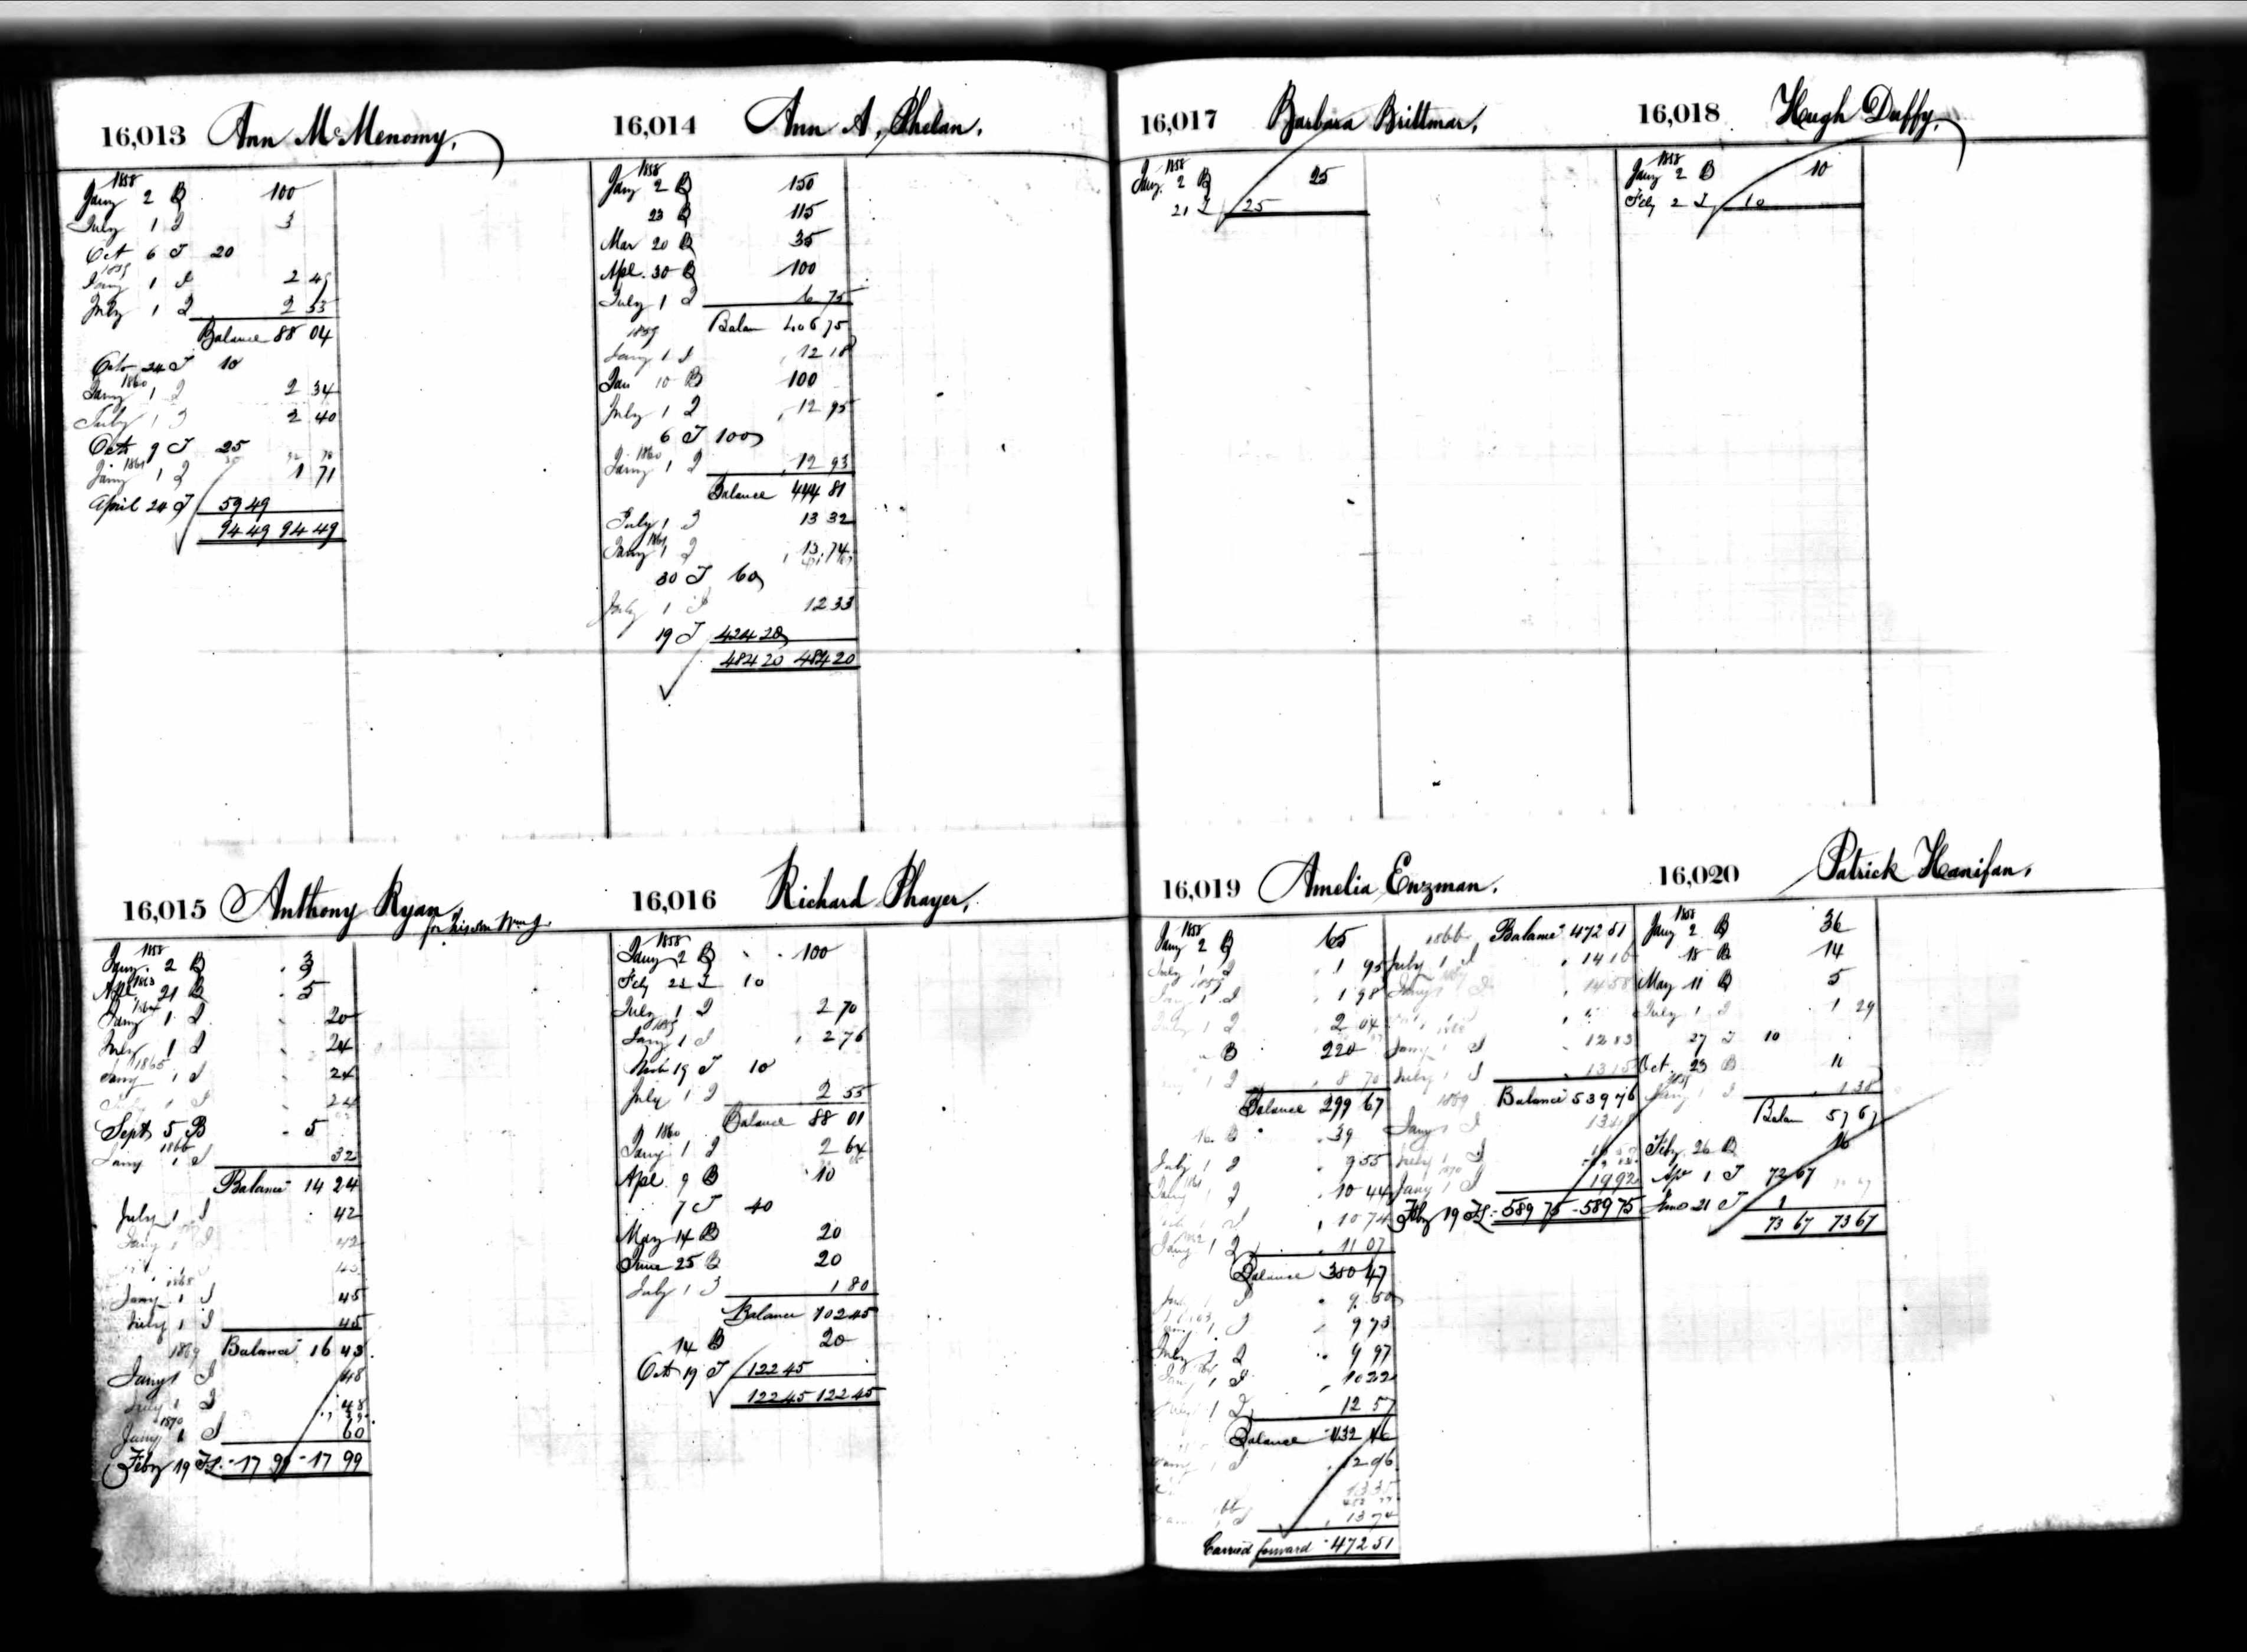 16,013 Ann McMenomy,
1858
Jany 2 B 100
July 1 I 3
Oct 6 T 20
1859
Jany 1 I 2 49
July 1 I 2 55
Balance 88 04
Oct 24 T 10
1860
Jany 1 I 2 34
July 1 I 2 40
Oct 9 T 25
1861
Jany 1 I 1 71
April 24 T 59 49
94 49 94 49
16,014 Ann A. Phelan,
1858
Jany 2 B 150
23 B 115
Mar 20 B 35
Apl. 30 B 100
July 1 I 6 75
Balan 406 75
1859
Jany 1 I 12 18
Jan 10 B 100
July 1 I 12 95
6 T 100
1860
Jany 1 I 12 93
Balance 444 81
July 1 I 13 32
1861
Jany 1 I 13.74
30 T 60
July 1 I 12 33
19 T 424 20
484 20 484 20
16,015 Anthony Ryan,
for his son Wm J.
1858
Jany. 2 B 3
1863
Apl. 21 B 5
1864
Jany 1 I 20
July 1 I 24
1865
Jany 1 I 24
July 1 I 24
Sept 5 B 5
1866
Jany 1 I 32
Balance 14 24
July 1 I 42
Jany 1 I 42
45
1868
Jany 1 I 45
July 1 I 45
Balance 16 43
1869
Jany 1 I 48
July 1 I 48
1870
Jany 1 I 60
Feby 19 17 99 17 99
16,016 Richard Phayer,
1858
Jany 2 B 100
Feby 10
July 1 I 2 70
1859
Jany 1 I 2 76
19 T 10
July 1 I 2 55
Balance 88 01
1860
Jany 1 I 2 64
Apl. 9 B 10
7 T 40
May 14 B 20
June 25 B 20
July 1 I 1 80
Balance 102 45
14 B 20
Oct 19 T 122 45
122 45 122 45
16,017 Barbara Brittmar,
1858
Jany. 2 B 25
21 T 25
16,018 Hugh Duffy,
1858
Jany 2 B 10
Feby 2 T 10
16,019 Amelia Enzman,
1858
Jany 2 B 65
July 1 I 1 95
1859
Jany 1 I 1 98
July 1 I 2 04
B 220
1 I 8 70
Balance 299 67
16 B 39
July 1 I 9 55
1861
Jany 1 I 10 44
1 I 10 74
1862
Jany 1 I 11 07
Balance 380 47
I 9.50
I 9 73
July 1 I 9 97
Jany 1 I 10 22
1 I 12 57
Balance 432 46
1 I 12 96
13 35
66
I 13 74
Carried forward 472 51
1866 Balance 472 51
July 1 I 14 16
Jany 1 I 14 58
Jany 1 I 12 83
July 1 I 13 15
Balance 539 76
1869
Jany 1 I
July 1 I
1870
Jany 1 I 19 92
Feby 19 589 75 589 75
16,020 Patrick Hanifan,
1858
Jany 2 B 36
18 B 14
May 11 B 5
July 1 I 1 29
27 T 10
Oct. 23 B
1859
Jany 1 I 1 38
Balan 57 67
Feby. 26 B 16
Apr 1 T 72 67
21 T 1
73 67 73 67